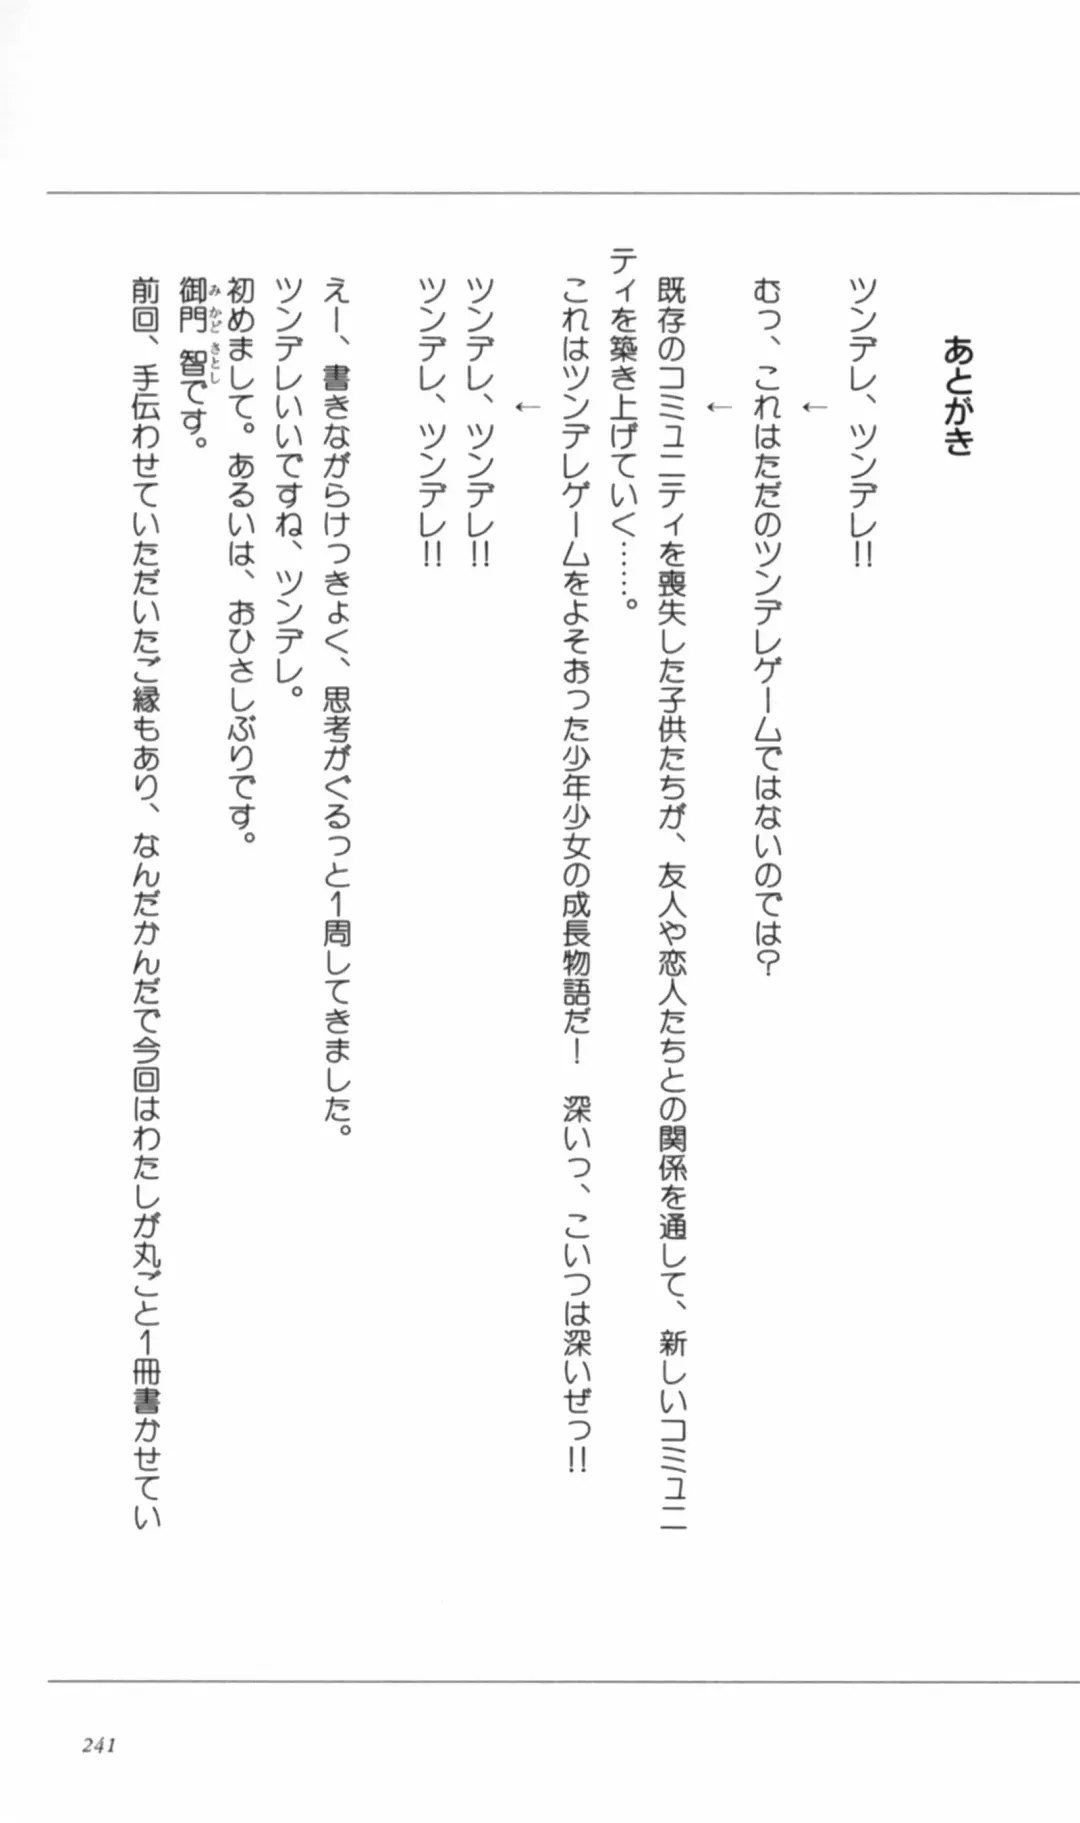 あとがき
ツンデレ、ツンデレ!!
←
むっ、これはただのツンデレゲームではないのでは?
←
既存のコミュニティを喪失した子供たちが、友人や恋人たちとの関係を通して、新しいコミュニ
ティを築き上げていく……。
これはツンデレゲームをよそおった少年少女の成長物語だ！　深いっ、こいつは深いぜっ!!
←
ツンデレ、ツンデレ!!
ツンデレ、ツンデレ!!
えー、書きながらけっきょく、思考がぐるっと1周してきました。
ツンデレいいですね、ツンデレ。
初めまして。あるいは、おひさしぶりです。
御門　智です。
みかど　さとし
前回、手伝わせていただいたご縁もあり、なんだかんだで今回はわたしが丸ごと1冊書かせてい
241